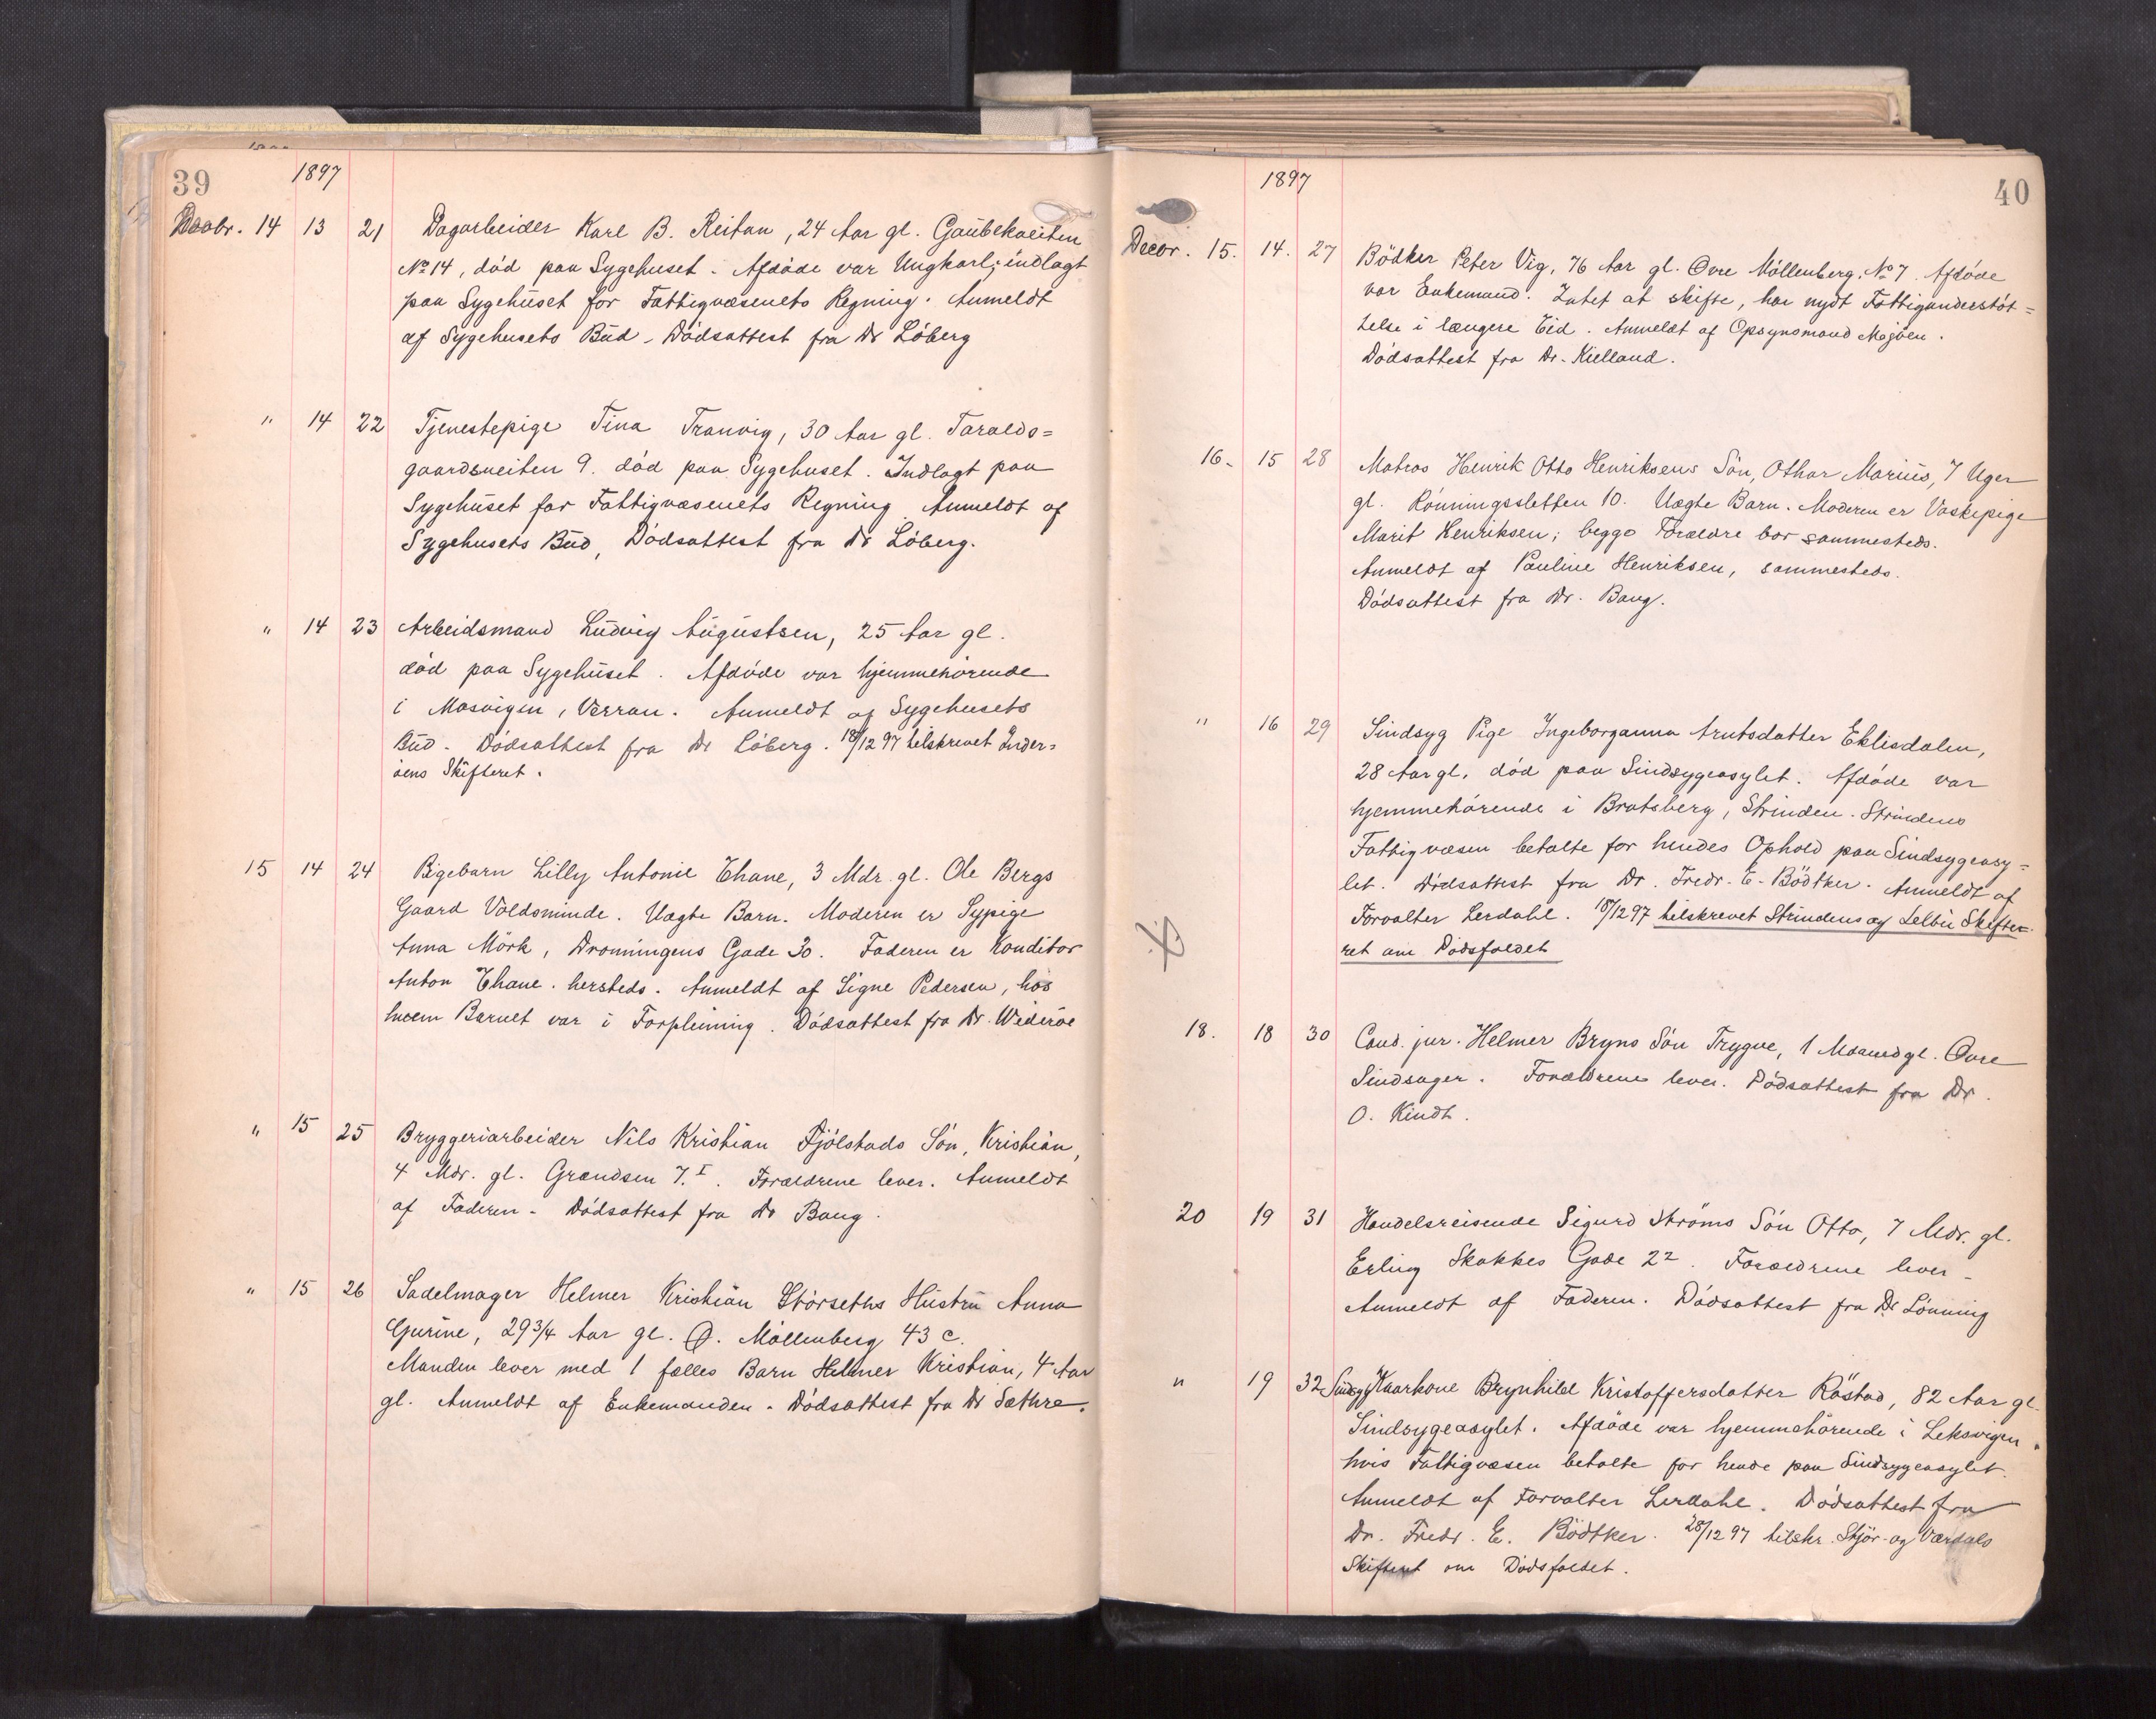 39
1897
Decbr. 14 13 21 Dagarbeider Karl B. Reitan, 24 Aar gl. Gaubekveiten
No 14, död paa Sygehuset. Afdöde var Ungkarl; indlagt
paa Sygehuset for Fattigvæsenets Regning. Anmeldt
af Sygehusets Bud. Dödsattest fra Dr Löberg
" 14 22 Tjenestepige Tina Tranvig, 30 Aar gl. Taralds=
gaardsveiten 9. död paa Sygehuset. Indlagt paa
Sygehuset for Fattigvæsenets Regning. Anmeldt af
Sygehusets Bud, Dödsattest fra Dr Löberg.
" 14 23 Arbeidsmand Ludvig Augustsen, 25 Aar gl.
död paa Sygehuset. Afdöde var hjemmehörende
i Mosvigen, Verran. Anmeldt af Sygehusets
Bud. Dödsattest fra Dr Löberg. 18/12 97 tilskrevet Inder=
öens Skifteret.
15 14 24 Pigebarn Lilly Antonie Thane, 3 Mdr. gl. Ole Bergs
Gaard Voldsminde. Uægte Barn. Moderen er Sypige
Anna Mörk, Dronningens Gade 30. Faderen er Konditor
Anton Thane. hersteds. Anmeldt af Signe Pedersen, hos
hvem Barnet var i Forpleining. Dödsattest fra Dr. Wideröe
" 15 25 Bryggeriarbeider Nils Kristian Fjölstads Sön, Kristian,
4 Mdr. gl. Grændsen 7.I. Forældrene lever. Anmeldt
af Faderen. Dödsattest fra Dr Bang.
" 15 26 Sadelmager Helmer Kristian Störseths Hustru Anna
Gurine, 29 3/4 Aar gl. Ø. Möllenberg 43 c.
Manden lever med 1 fælles Barn Helmer Kristian, 4 Aar
gl. Anmeldt af Enkemanden. Dödsattest fra Dr Sæthre.
1897
40
Decbr. 15. 14. 27 Bödker Peter Vig, 76 Aar gl. Øvre Möllenberg. No 7. Afdöde
var Enkemand. Intet at skifte, har nydt Fattigunderstöt=
telse i længere Tid. Anmeldt af Opsynsmand Mojöen.
Dödsattest fra Dr. Kielland.
16. 15 28 Matros Henrik Otto Henriksens Sön, Othar Marius, 7 Uger
gl. Rönningssletten 10. Uægte Barn. Moderen er Vaskepige
Marit Henriksen; begge Forældre bor sammesteds.
Anmeldt af Pauline Henriksen, sammesteds.
Dödsattest fra Dr. Bang.
" 16 29 Sindsyg Pige Ingeborganna Arntsdatter Eklisdalen,
28 Aar gl. död paa Sindsygeasylet. Afdöde var
hjemmehörende i Bratsberg, Strinden. Strindens
Fattigvæsen betalte for hendes Ophold paa Sindsygeasy=
let. Dödsattest fra Dr. Fredr. E. Bödtker. Anmeldt af
Forvalter Lerdahl. 18/12 97 tilskrevet Strindens og Selbu Skifte-
ret om Dödsfaldet
18. 18 30 Cand. jur. Helmer Bryns Sön Trygve, 1 Maaned gl. Øvre
Sindsager. Forældrene lever. Dödsattest fra Dr.
O. Kindt.
20 19 31 Handelsreisende Sigurd Ströms Sön Otto, 7 Mdr. gl.
Erling Skakkes Gade 22. Forældrene lever.
Anmeldt af Faderen. Dödsattest fra Dr. Lönning
" 19 32 Sindsyg Kaarkone Brynhild Kristoffersdatter Röstad, 82 Aar gl.
Sindsygeasylet. Afdöde var hjemmehörende i Leksvigen,
hvis Fattigvæsen betalte for hende paa Sindsygeasylet.
Anmeldt af Forvalter Lerdahl. Dödsattest fra
Dr. Fredr. E. Bödtker. 28/12 97 tilskr. Stjör- og Værdals
Skifteret om Dödsfaldet.